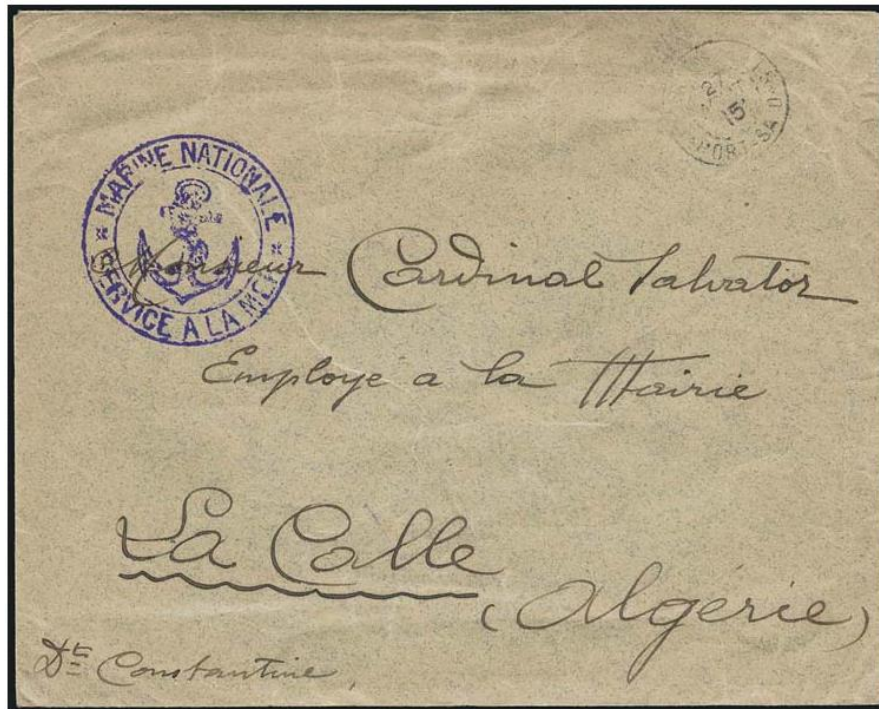 27
15
PORT-SA
MARINE NATIONALE
SERVICE A LA MER
Monsieur Cardinal Salvator
Employé a la Mairie
La Calle
(Algérie)
Dt Constantine